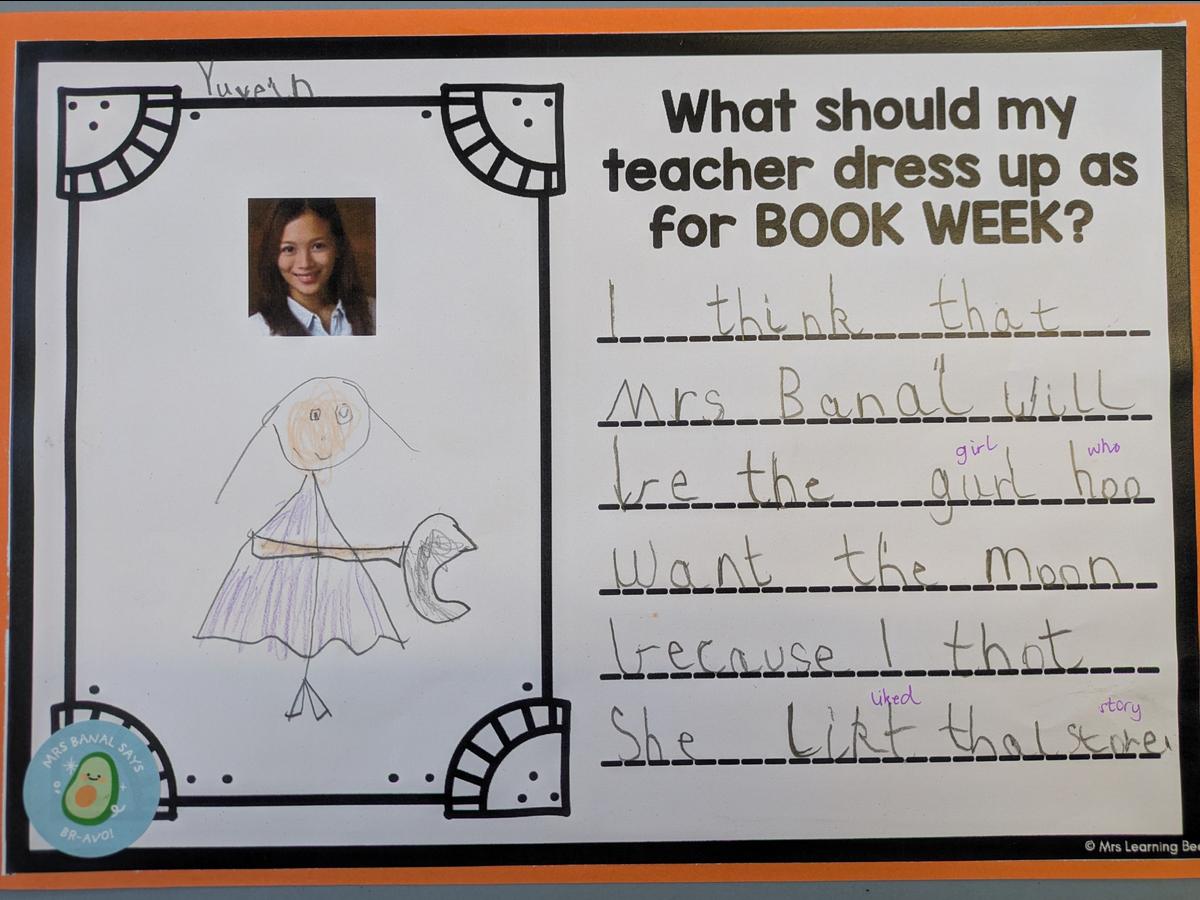 Yuvein
What should my
teacher dress up as
for BOOK WEEK?
I think that
Mrs Banal will
girl who
be the gurl hoo
want the moon
because I thot
liked story
She likt that store
MRS BANAL SAYS
BR-AVO!
© Mrs Learning Bee